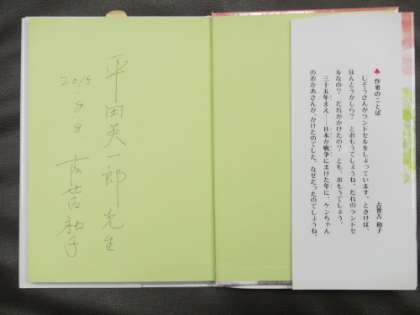 作者のことば
古世古 和子
じぞうさんがランドセルをしょっています。ときけば、
ほんとうかしら？ とおもうでしょうね。だれのランドセ
ルなの？ だれがかけたの？ とも、おもうでしょう。
三十五年まえ――日本が戦争にまけた年に、ケンちゃん
のおかあさんが、かけたのでした。なぜだったのでしょうね。
平田英一郎先生
古世古和子